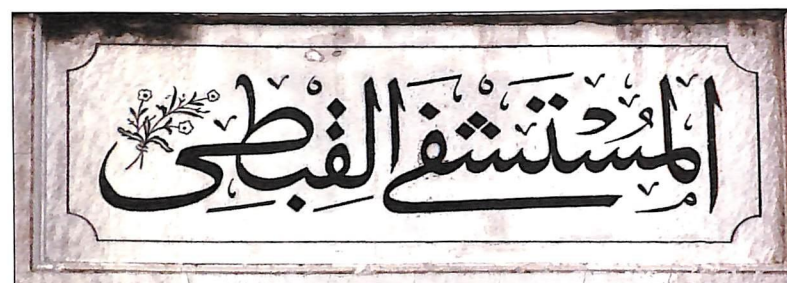 المستشفى القبطى